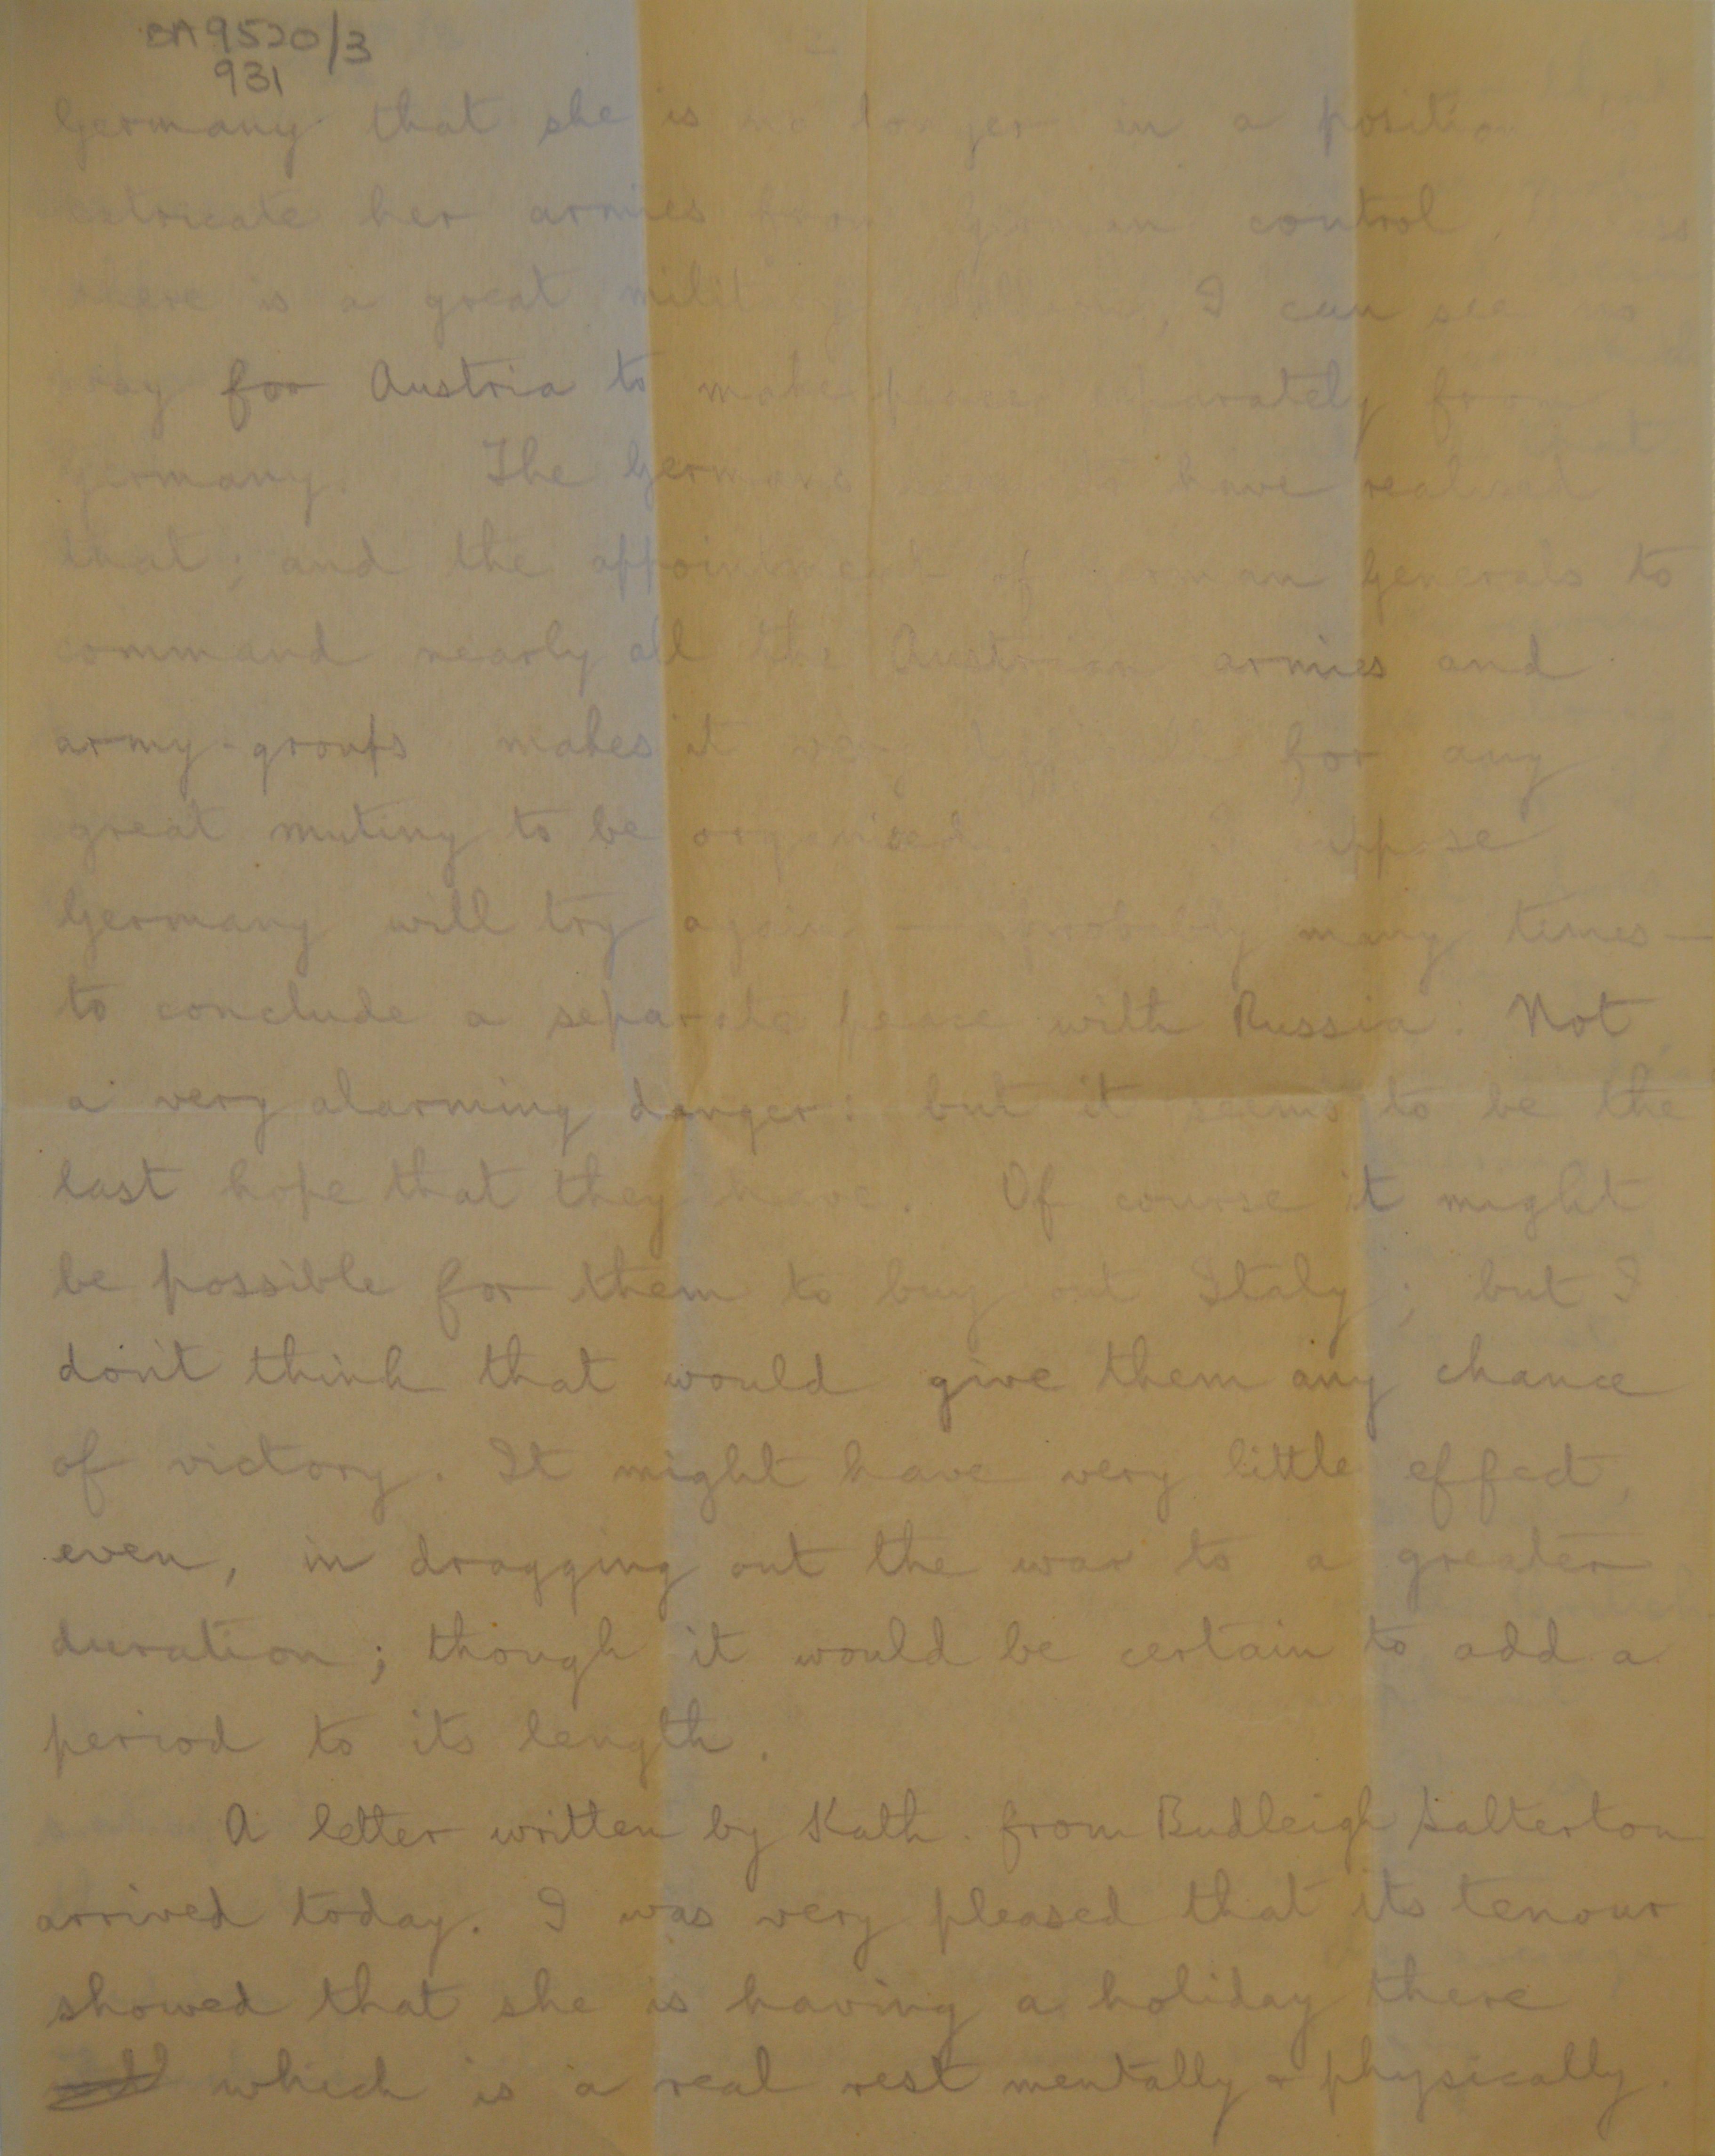 BA9520/3
931
Germany that she is no longer in a position
extricate her armies from German control. Unless
there is a great military, I can see no
way for Austria to make peace separately from
Germany. The Germans seem to have realised
that; and the appointment of German Generals to
command nearly all the Austrian armies and
army-groups makes it very difficult for any
great mutiny to be organised. I suppose
Germany will try again — probably many times —
to conclude a separate peace with Russia. Not
a very alarming danger: but it seems to be the
last hope that they have. Of course it might
be possible for them to buy out Italy; but I
don't think that would give them any chance
of victory. It might have very little effect,
even, in dragging out the war to a greater
duration; though it would be certain to add a
period to its length.
A letter written by Kath. from Budleigh Salterton
arrived today. I was very pleased that its tenour
showed that she is having a holiday there
which is a real rest mentally & physically.